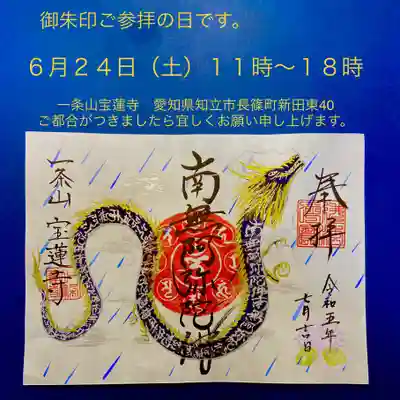 御朱印ご参拝の日です。
6月24日（土）11時～18時
一条山宝蓮寺　愛知県知立市長篠町新田東40
ご都合がつきましたら宜しくお願い申し上げます。
奉拝
令和五年
七月吉日
南無阿弥陀佛
一条山 宝蓮寺